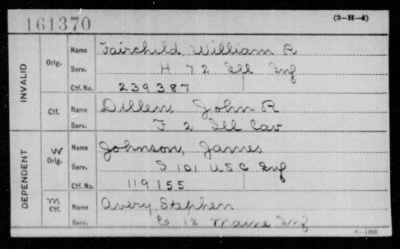 161370
(3-H-4)
INVALID
Orig. Name Fairchild, William R
Serv. H 72 Ill Inf
Ctf. No. 239387
Ctf. Name Dillen, John R
Serv. F 2 Ill Cav
DEPENDENT
W Orig. Name Johnson, James
Serv. S 101 USC Inf
Ctf. No. 119155
M Ctf. Name Avery, Stephen
Serv. E 12 Maine Inf